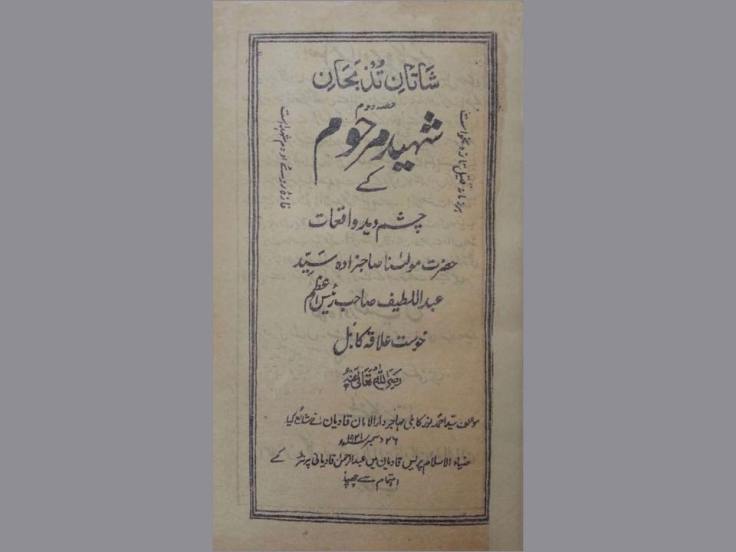 شاتان تذبحان
حصہ دوم
شہید مرحوم
کے
چشم دید واقعات
حضرت مولٰنا صاحبزادہ سیّد
عبداللطیف صاحب رئیس اعظم
خوست علاقہ کابل
رضی اللہ تعالیٰ عنہ
ہر زمانہ قتیل تازہ بخواست
غازۂ روئے او دم شہداست
مؤلفہ سیّد احمد نور کابلی مہاجر دارالامان قادیان نے شائع کیا
۲۶ دسمبر ۱۹۲۱ء
ضیاء الاسلام پریس قادیان میں عبدالرحمٰن قادیانی پرنٹر کے
اہتمام سے چھپا